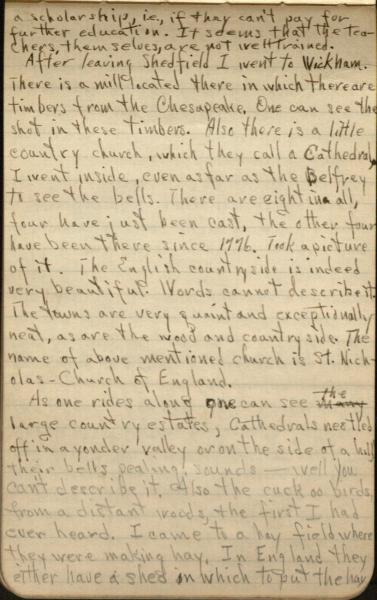 a scholarship, i.e., if they can't pay for
further education. It seems that the tea-
chers, themselves, are not well trained.
After leaving Shedfield I went to Wickham.
There is a mill located there in which there are
timbers from the Chesapeake. One can see the
shot in these timbers. Also there is a little
country church, which they call a Cathedral,
I went inside, even as far as the Belfrey
to see the bells. There are eight in all,
four have just been cast, the other four
have been there since 1776. Took a picture
of it. The English countryside is indeed
very beautiful. Words cannot describe it.
The towns are very quaint and exceptionally
neat, as are the wood and countryside. The
name of above mentioned church is St. Nich-
olas - Church of England.
As one rides along one can see many the
large country estates, Cathedrals nestled
off in a yonder valley or on the side of a hill
their bells pealing sounds — well you
can't describe it. Also the cuckoo birds
from a distant woods, the first I had
ever heard. I came to a hay field where
they were making hay. In England they
either have a shed in which to put the hay